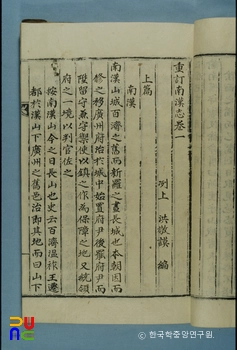 重訂南漢志卷一
洌上 洪敬謨 編
上篇
南漢
南漢山城百濟之舊而新羅之晝長城也本朝因而
修之移廣州府治於城中始置府尹後罷府尹而
陞留守兼守禦使以鎭之作爲保障之地又統領
府之一境以判官佐之
按南漢山今之日長山也史云百濟溫祚王遷
都於漢山下廣州之舊邑治即其地而曰山下
ⓒ 한국학중앙연구원